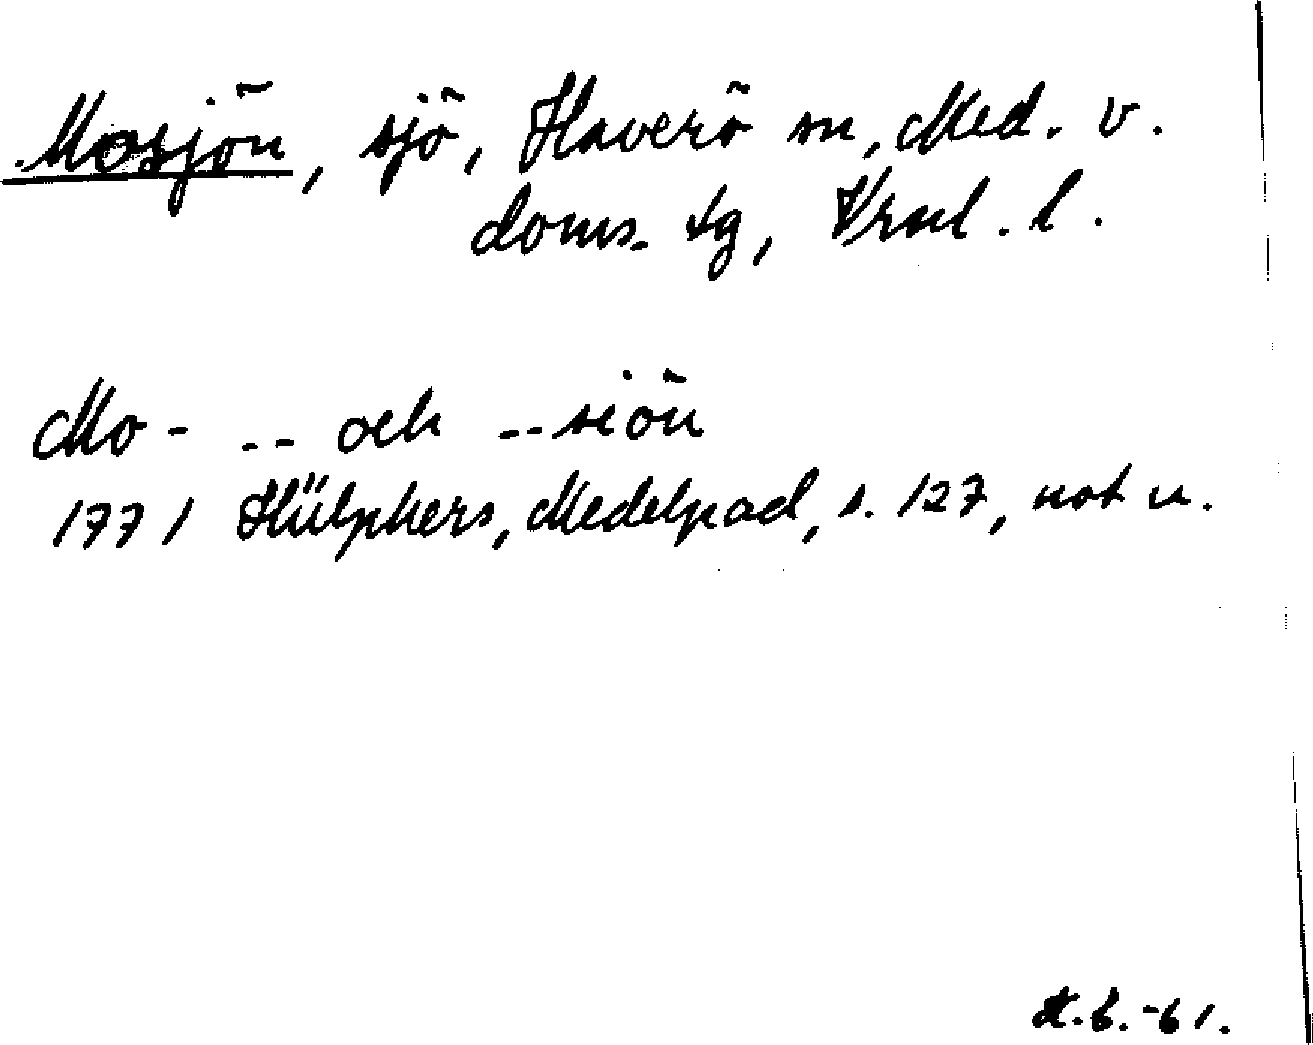 Mosjön, sjö, Haverö sn, Med. v.
doms. tg, Vrnl. l.
Mo- -- och --siön
1771 Hülphers, Medelpad, s. 127, not u.
-61.